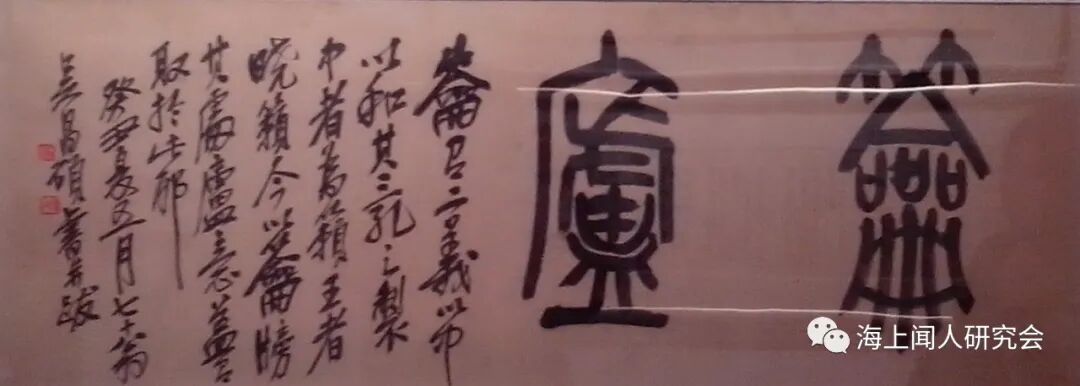 籥廬
籥召二言義以竹
以和其三孔之製
中者為籟王者
曉籟今以籥牓
其廬主意蓋
取於此邪
癸丑夏五月七十翁
吳昌碩書并跋
海上闻人研究会